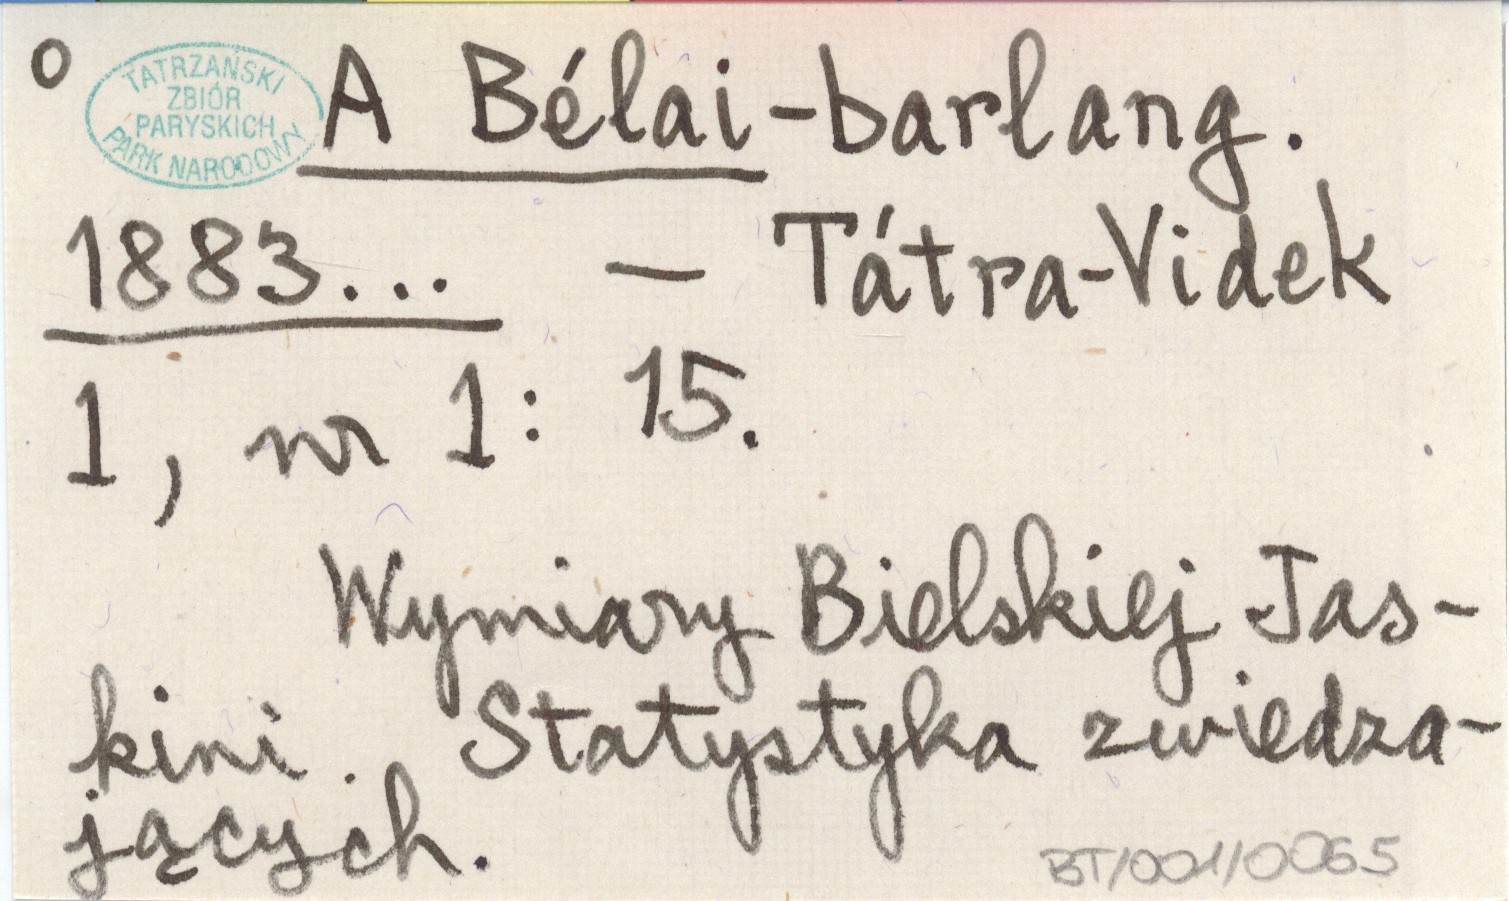 o
TATRZAŃSKI
ZBIÓR
PARYSKICH
PARK NARODOWY
A Bélai-barlang.
1883... — Tátra-Videk
1, nr 1: 15.
Wymiary Bielskiej Jas-
kini. Statystyka zwiedza-
jących.
BT/001/0065